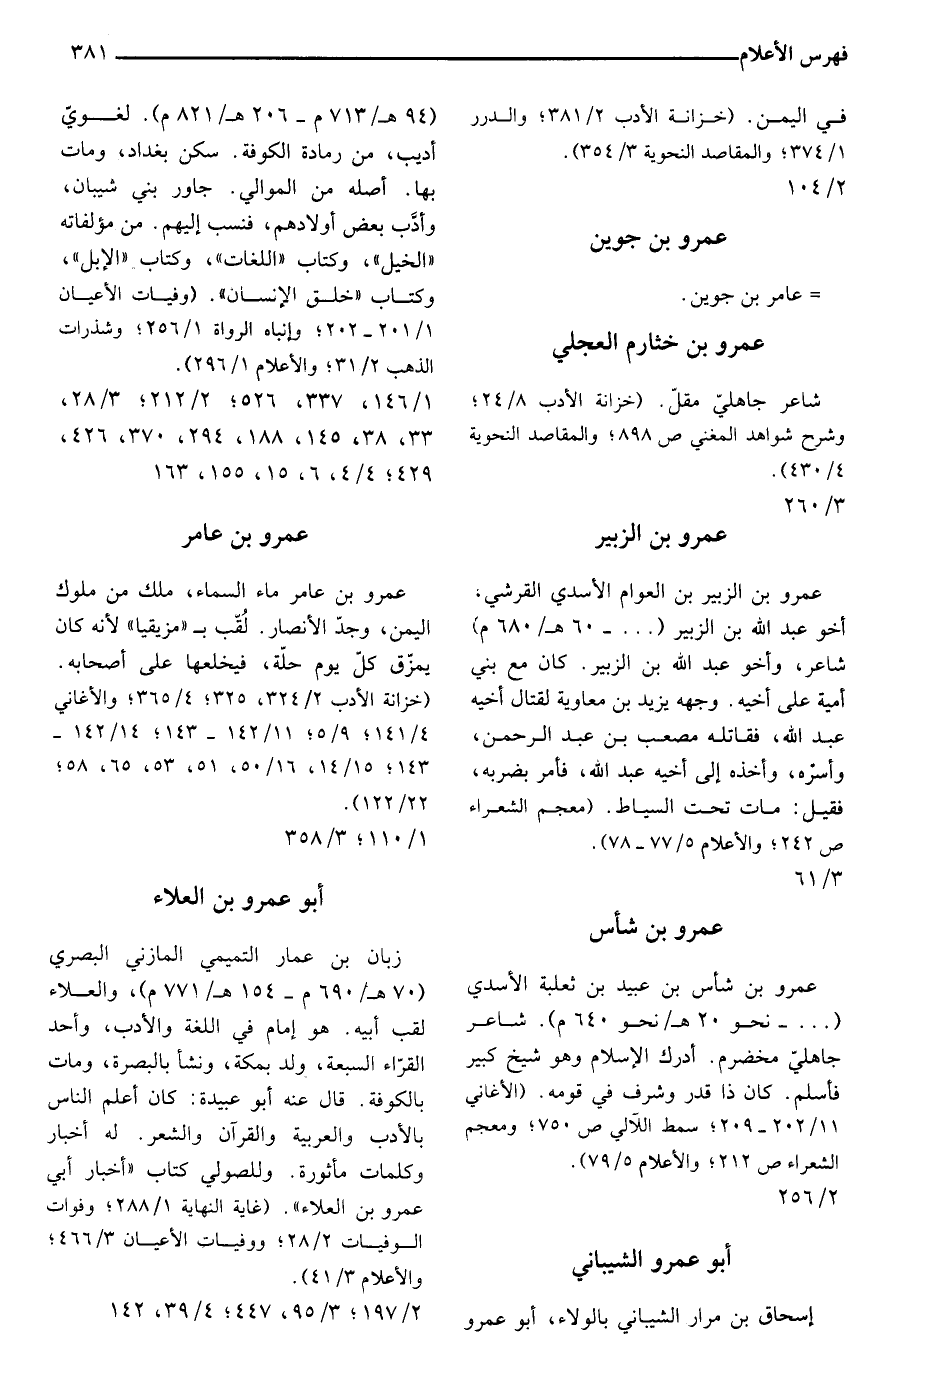 فهرس الأعلام ٣٨١
في اليمن. (خزانة الأدب ٢/ ٣٨١؛ والدرر
١/ ٣٧٤؛ والمقاصد النحوية ٣/ ٣٥٤).
٢/ ١٠٤
عمرو بن جوين
= عامر بن جوين.
عمرو بن خثارم العجلي
شاعر جاهليّ مقلّ. (خزانة الأدب ٨/ ٢٤؛
وشرح شواهد المغني ص ٨٩٨؛ والمقاصد النحوية
٤/ ٤٣٠).
٣/ ٢٦٠
عمرو بن الزبير
عمرو بن الزبير بن العوام الأسدي القرشي،
أخو عبد الله بن الزبير (... ـ ٦٠ هـ/ ٦٨٠ م)
شاعر، وأخو عبد الله بن الزبير. كان مع بني
أمية على أخيه. وجهه يزيد بن معاوية لقتال أخيه
عبد الله، فقاتله مصعب بن عبد الرحمن،
وأسرّه، وأخذه إلى أخيه عبد الله، فأمر بضربه،
فقيل: مات تحت السياط. (معجم الشعراء
ص ٢٤٢؛ والأعلام ٥/ ٧٧ ـ ٧٨).
٣/ ٦١
عمرو بن شأس
عمرو بن شأس بن عبيد بن ثعلبة الأسدي
(... ـ نحو ٢٠ هـ/ نحو ٦٤٠ م). شاعر
جاهليّ مخضرم. أدرك الإسلام وهو شيخ كبير
فأسلم. كان ذا قدر وشرف في قومه. (الأغاني
١١/ ٢٠٢ ـ ٢٠٩؛ سمط اللآلي ص ٧٥٠؛ ومعجم
الشعراء ص ٢١٢؛ والأعلام ٥/ ٧٩).
٢/ ٢٥٦
أبو عمرو الشيباني
إسحاق بن مرار الشيباني بالولاء، أبو عمرو
(٩٤ هـ/ ٧١٣ م ـ ٢٠٦ هـ/ ٨٢١ م). لغويّ
أديب، من رمادة الكوفة. سكن بغداد، ومات
بها. أصله من الموالي. جاور بني شيبان،
وأدَّب بعض أولادهم، فنسب إليهم. من مؤلفاته
«الخيل»، وكتاب «اللغات»، وكتاب «الإبل»،
وكتاب «خلق الإنسان». (وفيات الأعيان
١/ ٢٠١ ـ ٢٠٢؛ وإنباه الرواة ١/ ٢٥٦؛ وشذرات
الذهب ٢/ ٣١؛ والأعلام ١/ ٢٩٦).
١/ ١٤٦، ٣٣٧، ٥٢٦؛ ٢/ ٢١٢؛ ٣/ ٢٨،
٣٣، ٣٨، ١٤٥، ١٨٨، ٢٩٤، ٣٧٠، ٤٢٦،
٤٢٩؛ ٤/ ٤، ٦، ١٥، ١٥٥، ١٦٣
عمرو بن عامر
عمرو بن عامر ماء السماء، ملك من ملوك
اليمن، وجدّ الأنصار. لُقّب بـ «مزيقيا» لأنه كان
يمزّق كلّ يوم حلّة، فيخلعها على أصحابه.
(خزانة الأدب ٢/ ٣٢٤، ٣٢٥؛ ٤/ ٣٦٥؛ والأغاني
٤/ ١٤١؛ ٩/ ٥؛ ١١/ ١٤٢ ـ ١٤٣؛ ١٤/ ١٤٢ ـ
١٤٣؛ ١٥/ ١٤، ١٦/ ٥٠، ٥١، ٥٣، ٦٥، ٥٨؛
٢٢/ ١٢٢).
١/ ١١٠؛ ٣/ ٣٥٨
أبو عمرو بن العلاء
زبان بن عمار التميمي المازني البصري
(٧٠ هـ/ ٦٩٠ م ـ ١٥٤ هـ/ ٧٧١ م)، والعلاء
لقب أبيه. هو إمام في اللغة والأدب، وأحد
القرّاء السبعة، ولد بمكة، ونشأ بالبصرة، ومات
بالكوفة. قال عنه أبو عبيدة: كان أعلم الناس
بالأدب والعربية والقرآن والشعر. له أخبار
وكلمات مأثورة. وللصولي كتاب «أخبار أبي
عمرو بن العلاء». (غاية النهاية ١/ ٢٨٨؛ وفوات
الوفيات ٢/ ٢٨؛ ووفيات الأعيان ٣/ ٤٦٦؛
والأعلام ٣/ ٤١).
٢/ ١٩٧؛ ٣/ ٩٥، ٤٤٧؛ ٤/ ٣٩، ١٤٢